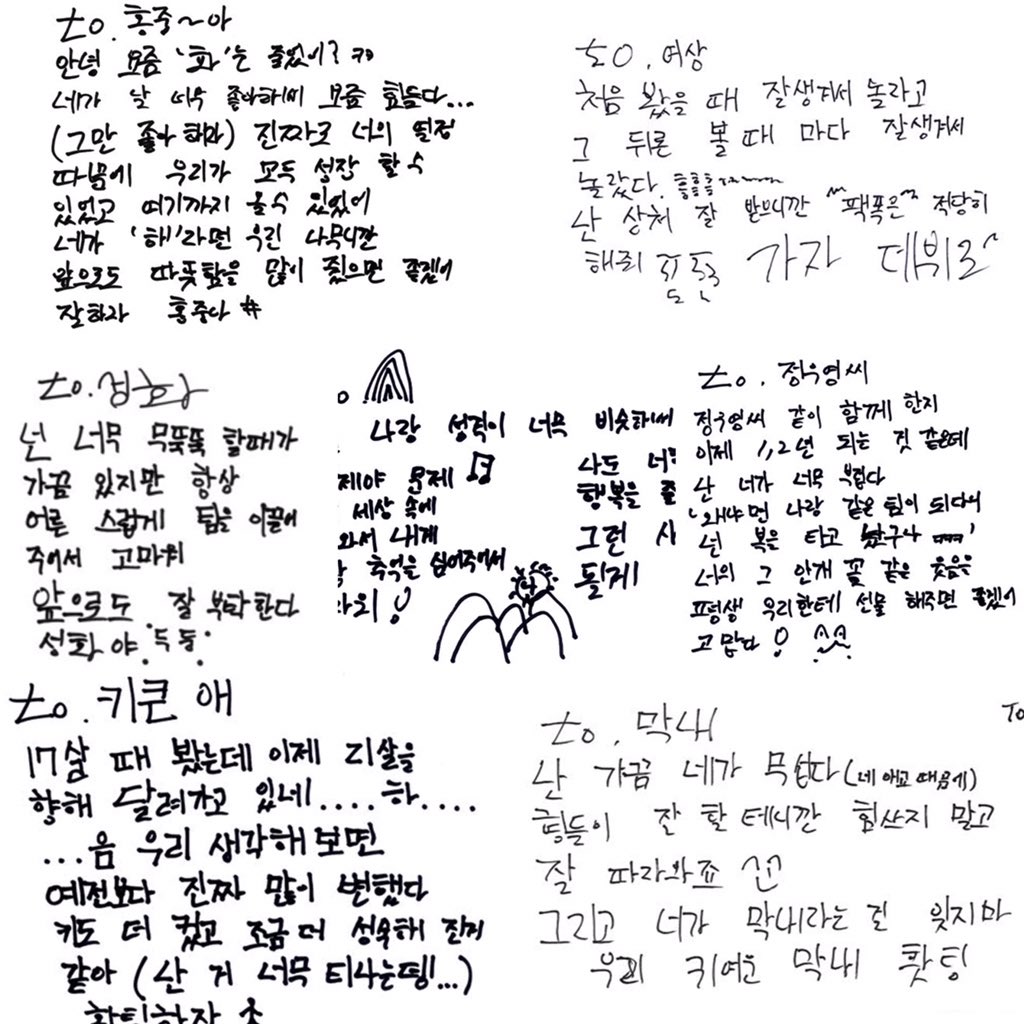 to. 홍중~아
안녕 요즘 '화'는 줄었어? ㅋㅋ
네가 날 너무 좋아해서 요즘 힘들다...
(그만 좋아 해라) 진짜로 너의 열정
때문에 우리가 모두 성장 할 수
있었고 여기까지 올 수 있었어
네가 '해'라면 우린 나무니깐
앞으로도 따뜻함을 많이 줬으면 좋겠어
잘하자 홍중아 #
to. 여상
처음 봤을 때 잘생겨서 놀라고
그 뒤론 볼 때 마다 잘생겨서
놀랐다. ㅎㅎㅎ
난 상처 잘 받으니깐 "팩폭은" 적당히
해줘 가자 데뷔로~
to. 성화
넌 너무 무뚝뚝 할때가
가끔 있지만 항상
어른 스럽게 팀을 이끌어
주어서 고마워
앞으로도 잘 부탁한다
성화야
나랑 성격이 너무 비슷하
제야 문제
세상 속에
와서 내게
추억을 심어주어서
나도 너
행복을 줄
그런 사
될게
to. 정우영씨
정우영씨 같이 함께 한지
이제 1,2년 되는 것 같은데
난 너가 너무 부럽다
'왜냐면 나랑 같은 팀이 되다니
넌 복을 타고 났구나 ㅋㅋㅋ'
너의 그 안개 꽃 같은 웃음을
평생 우리한테 선물 해주면 좋겠어
고맙다 ! ^^
to. 키큰 애
17살 때 봤는데 이제 21살을
향해 달려가고 있네.... 하....
...음 우리 생각해보면
예전보다 진짜 많이 변했다
키도 더 컸고 조금 더 성숙해 진거
같아 (산 거 너무 티나는띵!...)
화팅하자
to. 막내
난 가끔 네가 무섭다 (네 애교 때문에)
형들이 잘 할 테니깐 힘쓰지 말고
잘 따라와죠
그리고 너가 막내라는 걸 잊지마
우리 귀여운 막내 홧팅
To